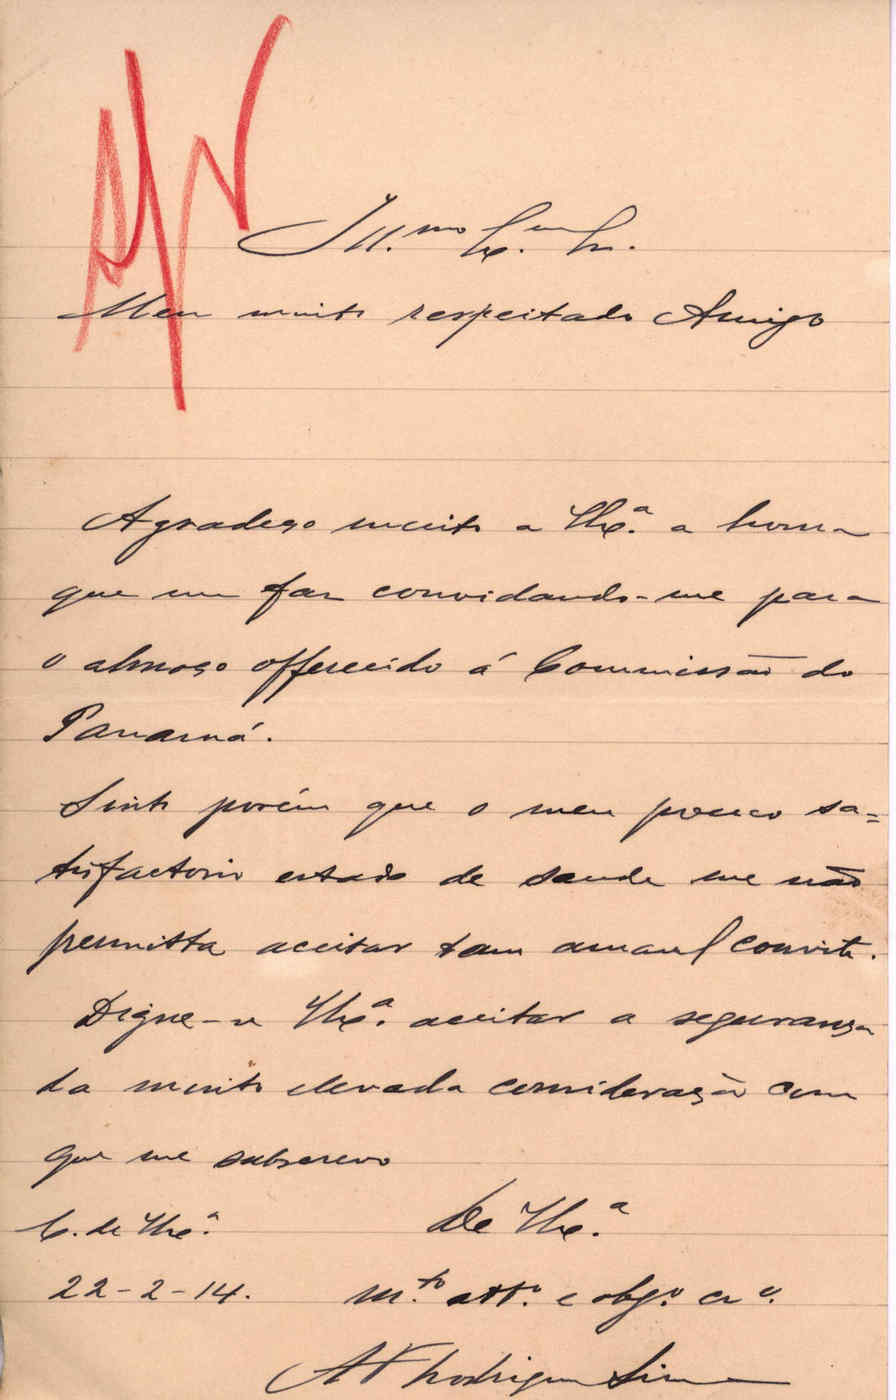 Ill.mo Ex.mo Sr.
Meu muito respeitado Amigo
Agradeço muito a VEx.ª a honra
que me faz convidando-me para
o almoço offerecido á Commissão do
Panamá.
Sinto porém que o meu pouco sa=
tisfactorio estado de saude me não
permitta aceitar tam amavel convite.
Digne-se VEx.ª aceitar a segurança
da muito elevada consideração com
que me subscrevo
C. de VEx.ª
De VEx.ª
22-2-14.
M.to att.º e obg.º cr.º
Rodrigues